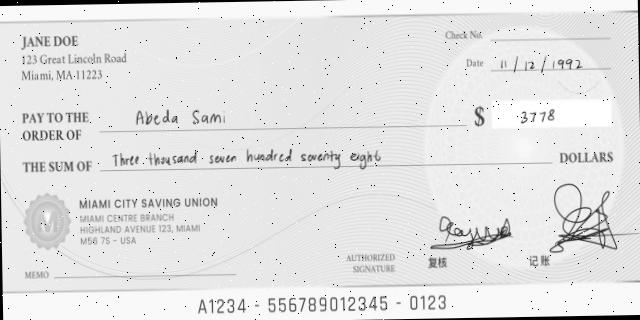 JANE DOE
123 Great Lincoln Road
Miami, MA 11223
Check No.
Date 11 / 12 / 1992
PAY TO THE ORDER OF Abeda Sami $ 3778
THE SUM OF Three thousand seven hundred seventy eight DOLLARS
MIAMI CITY SAVING UNION
MIAMI CENTRE BRANCH
HIGHLAND AVENUE 123, MIAMI
M56 7S - USA
MEMO
AUTHORIZED SIGNATURE
复核 记账
A1234 - 556789012345 - 0123